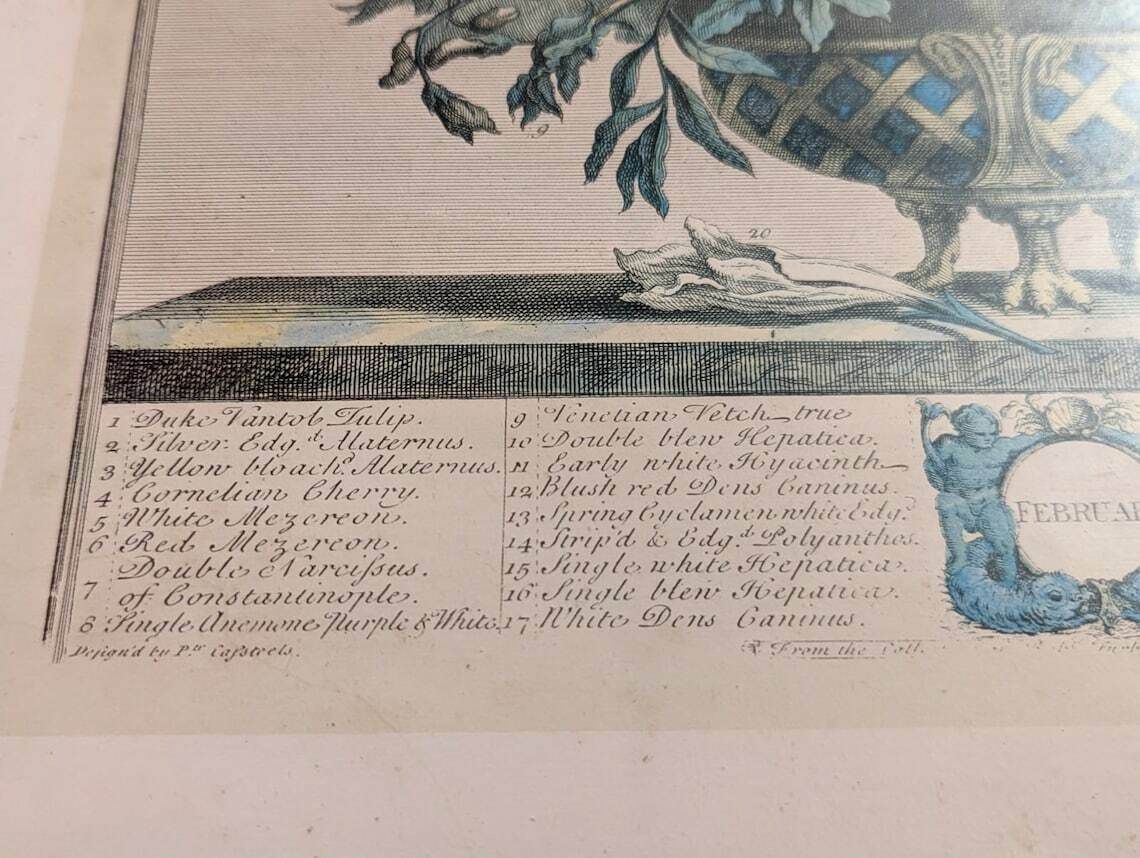 9
20
1 Duke Vantol Tulip.
2 Silver Edg.d Alaternus.
3 Yellow bloach.d Alaternus.
4 Cornelian Cherry.
5 White Mezereon.
6 Red Mezereon.
7 Double Narcissus.
of Constantinople.
8 Single Anemone Purple & White.
9 Venetian Vetch true
10 Double blew Hepatica.
11 Early white Hyacinth
12 Blush red Dens Caninus.
13 Spring Cyclamen white Edg.d
14 Strip'd & Edg.d Polyanthos.
15 Single white Hepatica.
16 Single blew Hepatica.
17 White Dens Caninus.
FEBRUAR
Design'd by P.tr Casteels.
From the Coll.